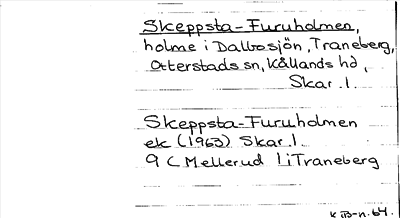 Skeppsta-Furuholmen,
holme i Dalbosjön, Traneberg,
Otterstads sn, Kållands hd,
Skar. l.
Skeppsta-Furuholmen
ek (1963) Skar. l.
9 C Mellerud l i Traneberg
K 64.